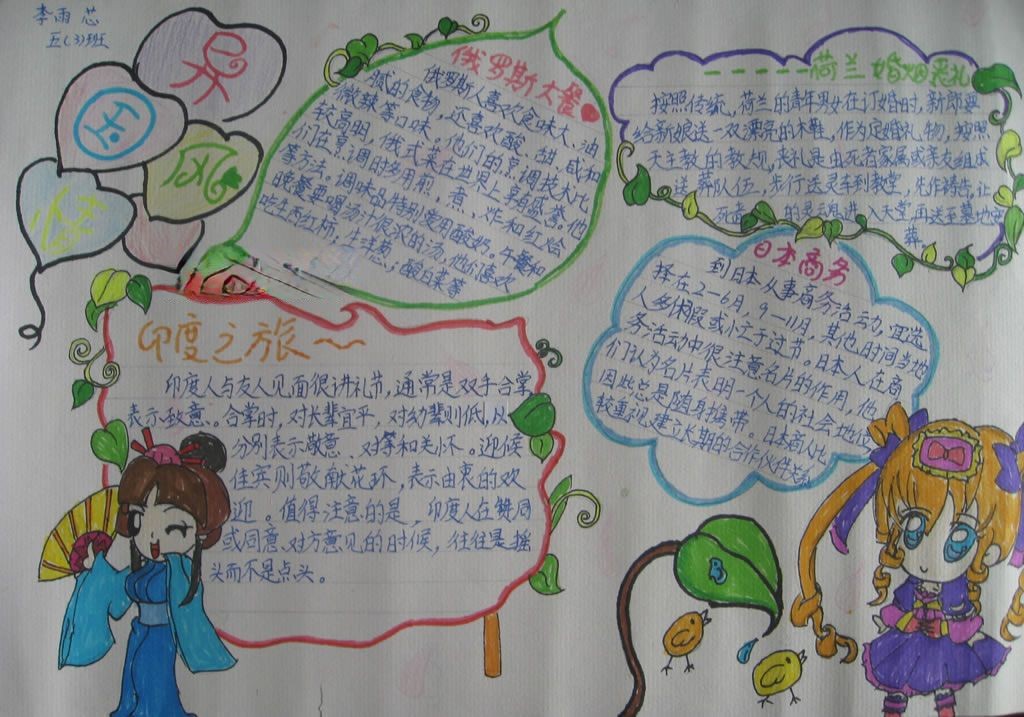 李雨芯
五(3)班
异
国
风
情
俄罗斯大餐
俄罗斯人喜欢食味大、油
腻的食物,还喜欢酸、甜、咸和
微辣等口味。他们的烹调技术比
较高明,俄式菜在世界上享有盛誉。他
们在烹调时多用煎、煮、炸和红烩
等方法。调味品特别爱用酸奶。午餐和
晚餐要喝汤汁很浓的汤,他们喜欢
吃生西红柿,生洋葱、酸白菜等
荷兰婚姻丧礼
按照传统,荷兰的青年男女在订婚时,新郎要
给新娘送一双漂亮的木鞋,作为定婚礼物,按照
天主教的教规,丧礼是由死者家属或亲友组成
送葬队伍,步行送灵车到教堂,先作祷告,让
死者的灵魂进入天堂再送至墓地安
葬。
日本商务
到日本从事商务活动,宜选
择在2—6月,9—11月,其他时间当地
人多休假或忙于过节。日本人在商
务活动中很注意名片的作用,他
们认为名片表明一个人的社会地位,
因此总是随身携带。日本商人比
较重视建立长期的合作伙伴关系
印度之旅
印度人与友人见面很讲礼节,通常是双手合掌
表示致意。合掌时,对长辈宜平,对幼辈则低,从
分别表示敬意、对等和关怀。迎候
佳宾则敬献花环,表示由衷的欢
迎。值得注意的是,印度人在赞同
或同意对方意见的时候,往往是摇
头而不是点头。